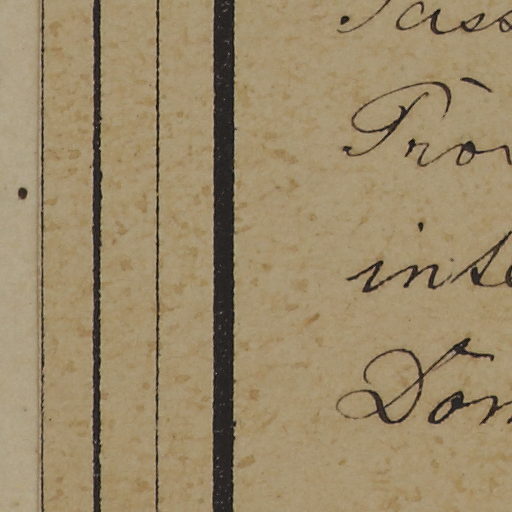 Pass
Pro
inte
Dom